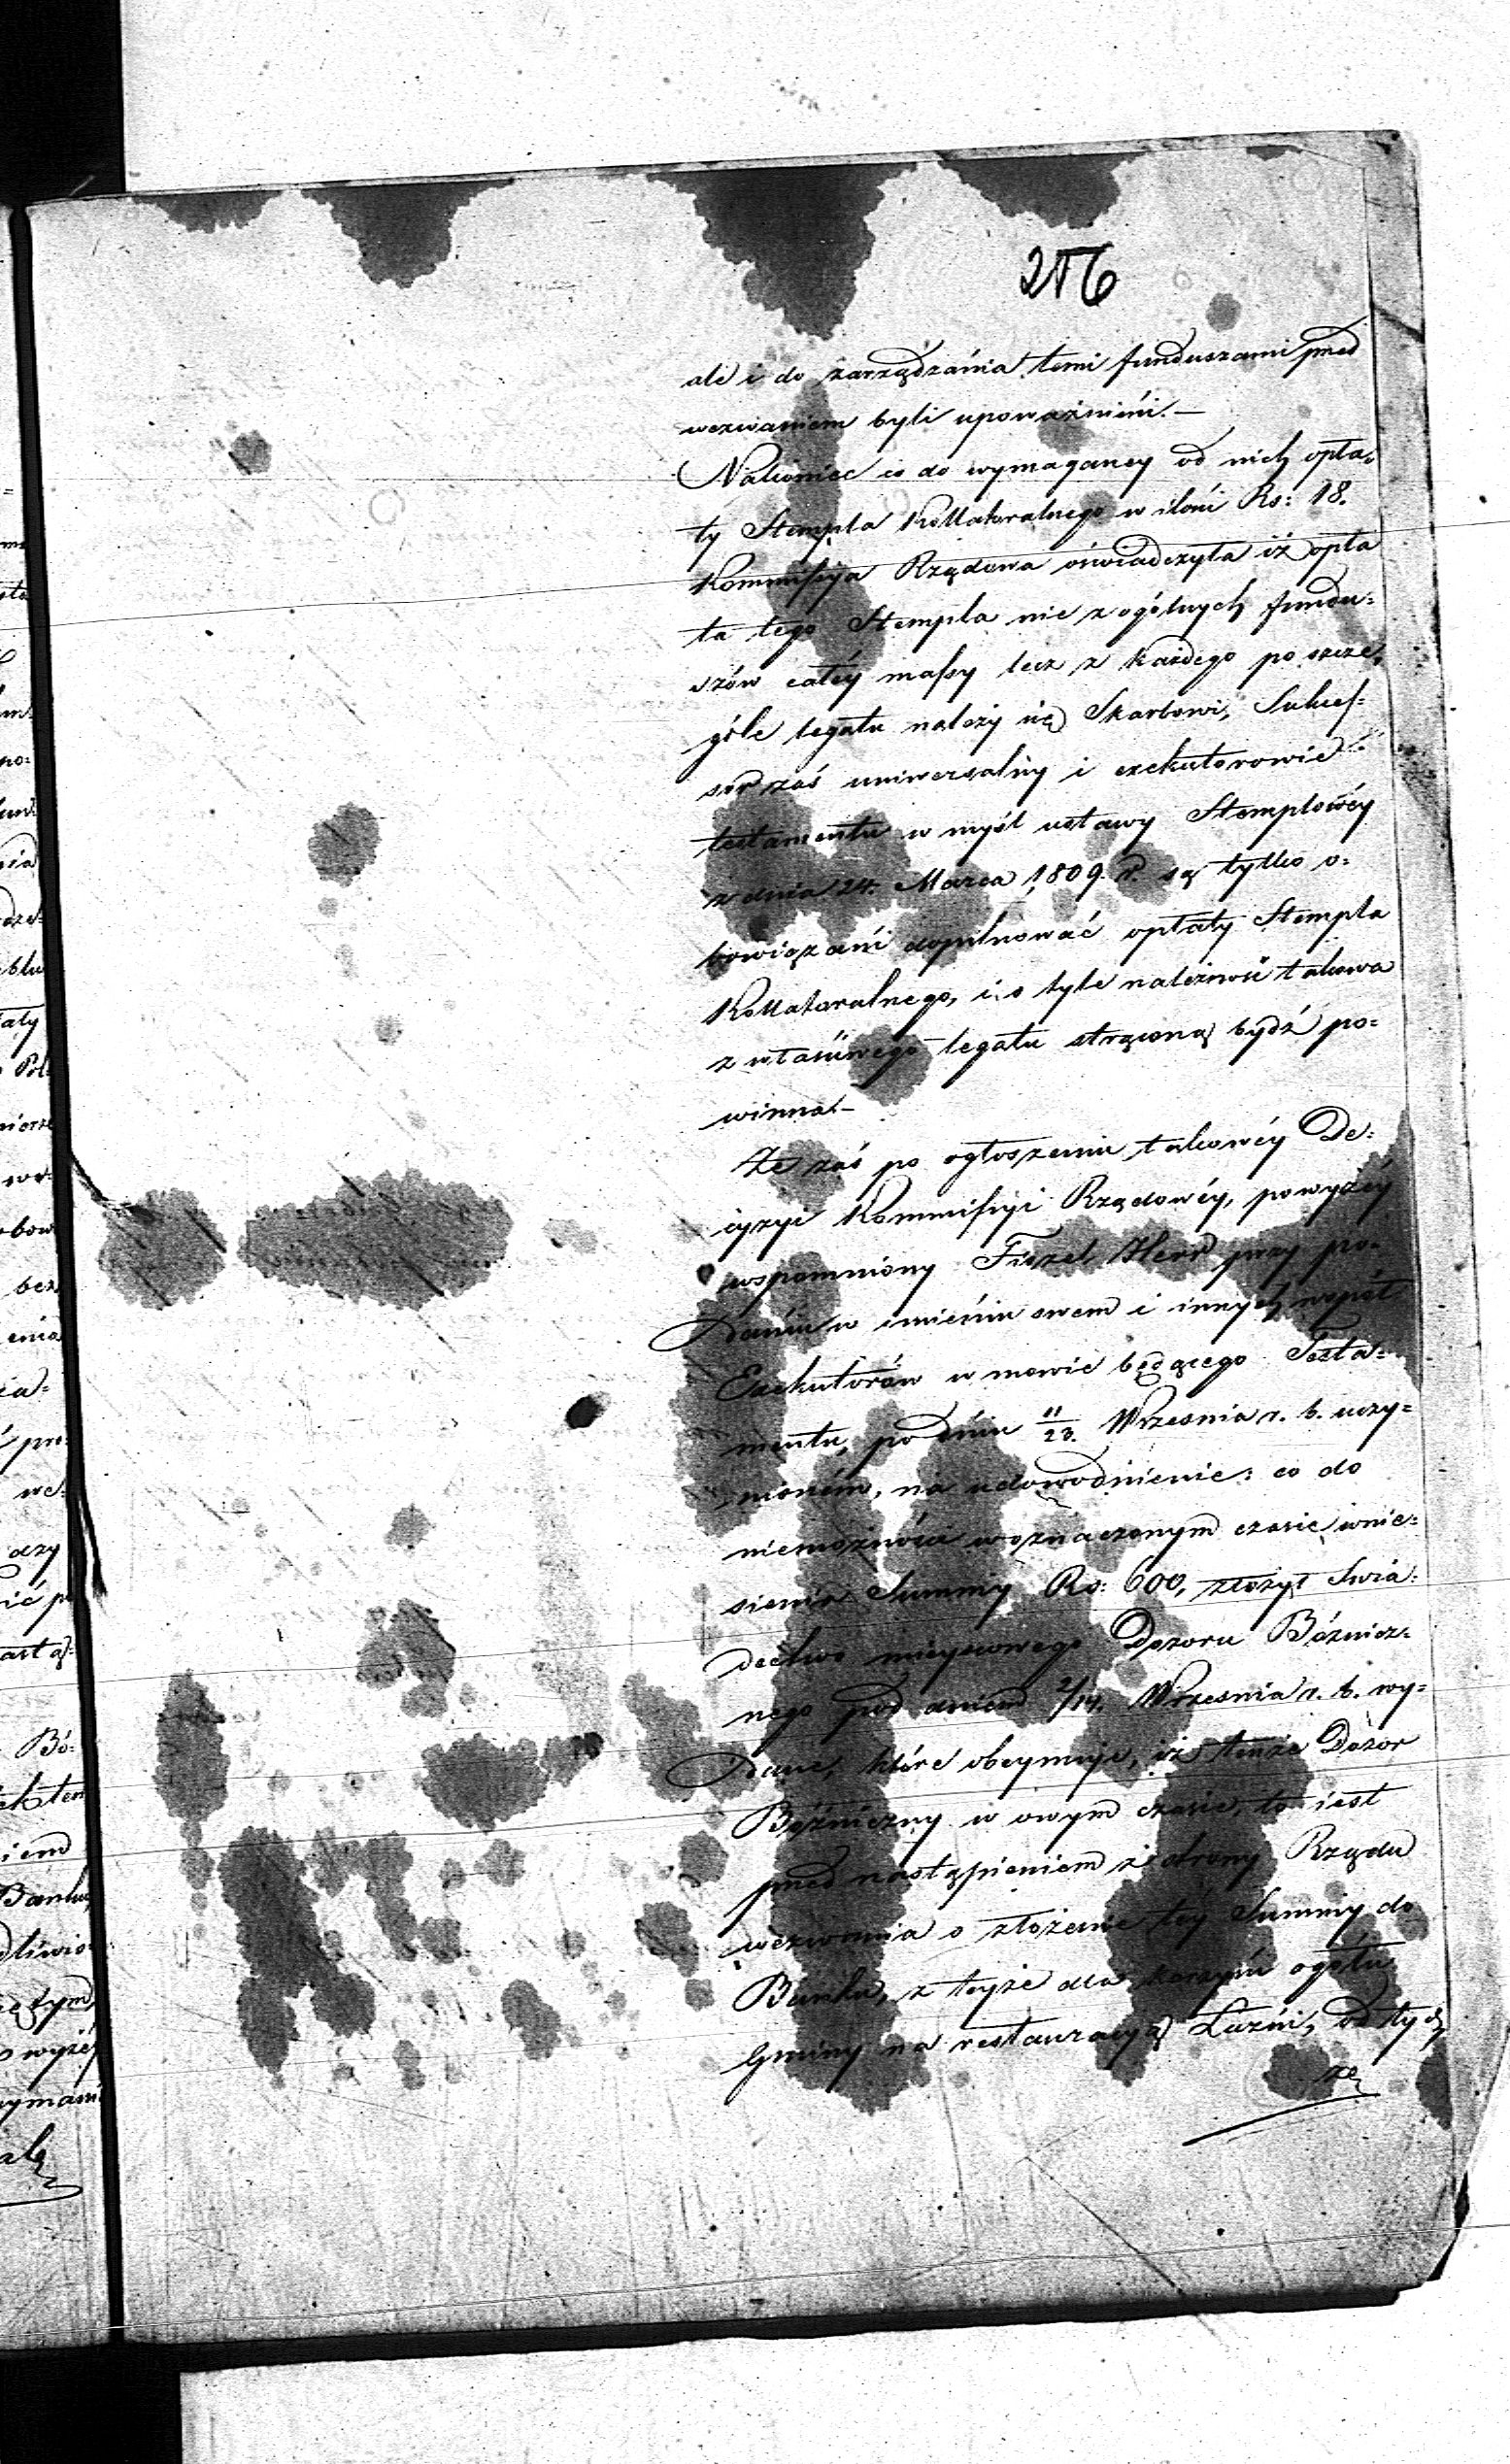 256
ale i do zarządzánia temi funduszami przed
wezwaniem byli upoważnieni. —
Nakoniec co do wymaganey od nich opła-
ty Stempla Kollateralnego w ilości Rs: 18.
Kommissyja Rządowa oświadczyła iż opła
ta tego Stempla nie z ogólnych fundu=
szów całéy massy lecz z każdego po szcze,
góle legatu należy się Skarbowi, Sukces=
sor zaś uniwersalny i exekutorowie
testamentu w myśl ustawy Stemplowéy
z dnia 24. Marca 1809. r. są tylko o=
bowiązani dopilnować opłaty Stempla
Kollateralnego, i o tyle należność takowa
z właściwego legatu strąconą bydź po=
winna. –
Że zaś po ogłoszeniu takowéy De=
cyzyi Kommissyi Rządowéy, powyżéy
wspomniony Fiszel Herr przy po=
daniu w imieniu swem i innych współ
Exekutorów w mowie będącego Testa=
mentu, pod dniu 11/23. Wrzesnia r. b. uczy=
nioném, na udowodnienie: co do
niemożności w oznaczonym czasie wnie=
sienia Summy Rs: 600, złożył Swia=
dectwo mieyscowego Dozoru Bóżnicz=
nego pod dniem 2/14. Wrzesnia r. b. wy=
dane, które obeymuje, iż tenże Dozór
Bóżniczny w owym czasie, to iest
przed nastąpieniem ze strony Rządu
wezwania o złożenie téy Summy do
Banku, z teyże dla korzyści ogółu
Gminy na restauracyą Łaźni, od tych
że